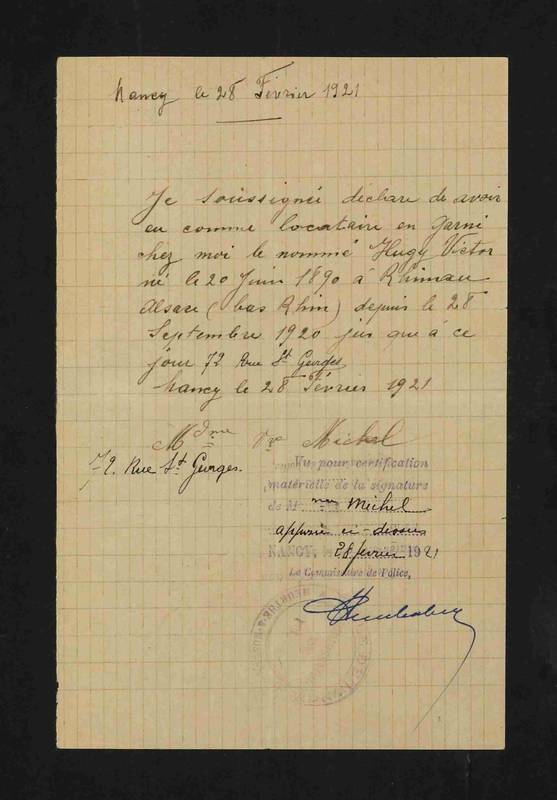 Nancy le 28 Février 1921
Je soussignée déclare de avoir
eu comme locataire en garni
chez moi le nommé Hugy Victor
né le 20 Juin 1890 à Rhinau
Alsace (bas Rhin) depuis le 28
Septembre 1920 jus que à ce
jour 72 Rue St Georges
Nancy le 28 Février 1921
Mdme Vve Michel
72. Rue St Georges.
Vu pour certification
matérielle de la signature
de Mme Michel
apposée ci-dessus
NANCY, 28 février 1921
Le Commissaire de Police,